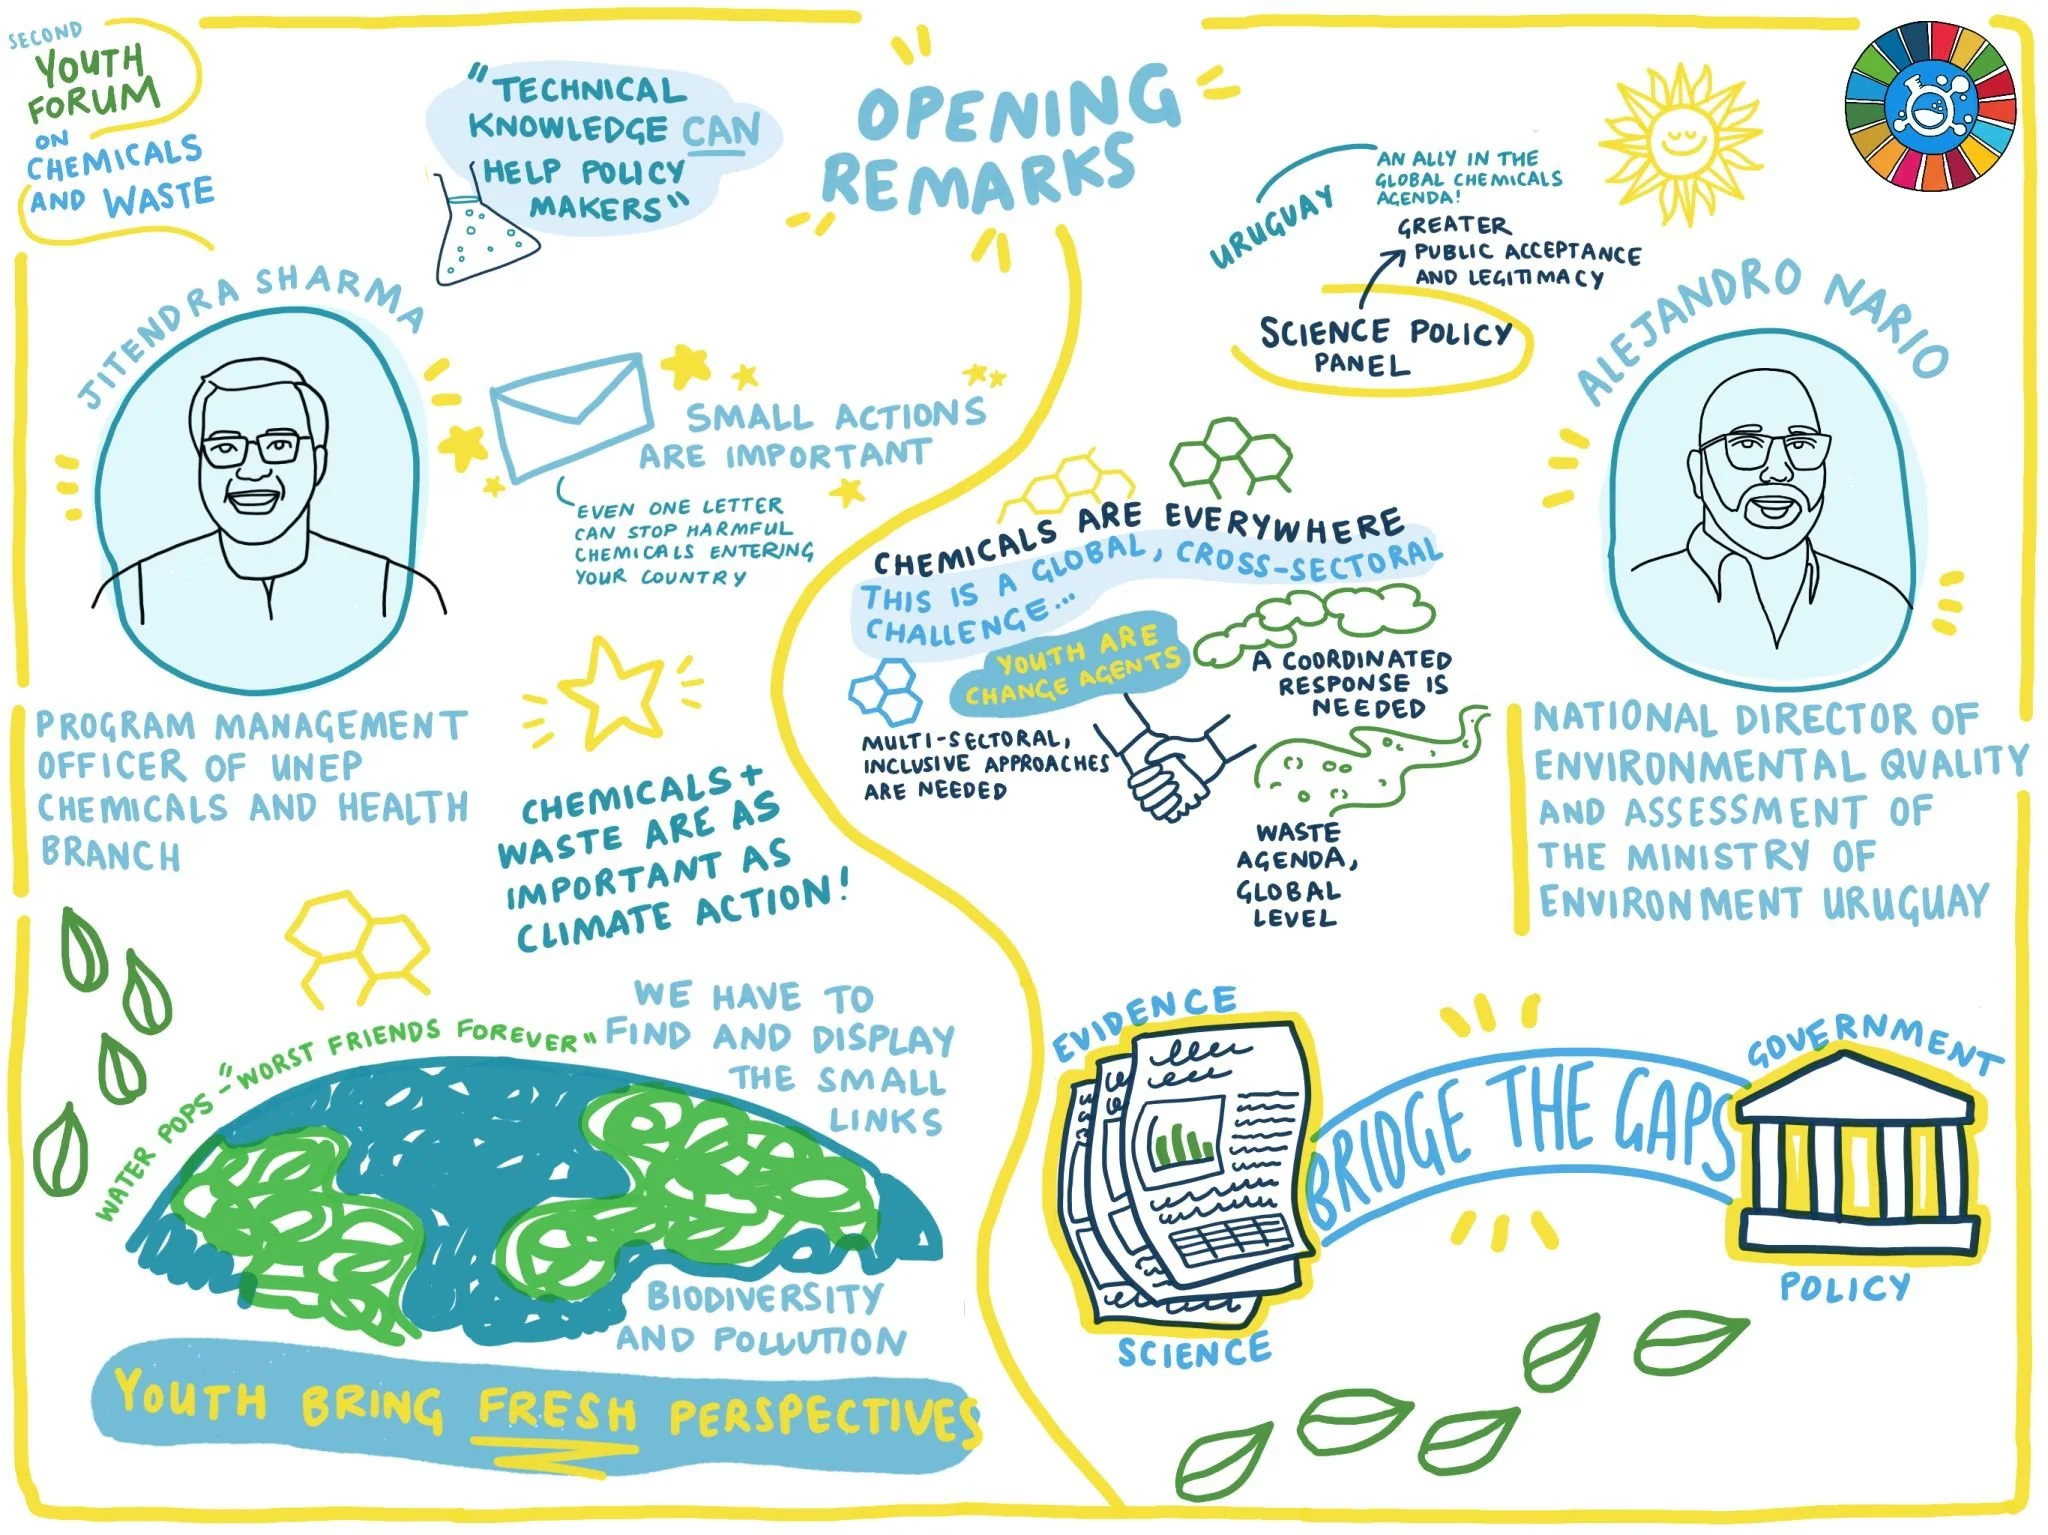 SECOND
YOUTH
FORUM
ON
CHEMICALS
AND WASTE
"TECHNICAL
KNOWLEDGE CAN
HELP POLICY
MAKERS"
OPENING
REMARKS
JITENDRA SHARMA
PROGRAM MANAGEMENT
OFFICER OF UNEP
CHEMICALS AND HEALTH
BRANCH
SMALL ACTIONS
ARE IMPORTANT
EVEN ONE LETTER
CAN STOP HARMFUL
CHEMICALS ENTERING
YOUR COUNTRY
CHEMICALS +
WASTE ARE AS
IMPORTANT AS
CLIMATE ACTION!
WATER POPS - "WORST FRIENDS FOREVER"
WE HAVE TO
FIND AND DISPLAY
THE SMALL
LINKS
BIODIVERSITY
AND POLLUTION
YOUTH BRING FRESH PERSPECTIVES
URUGUAY
AN ALLY IN THE
GLOBAL CHEMICALS
AGENDA!
GREATER
PUBLIC ACCEPTANCE
AND LEGITIMACY
SCIENCE POLICY
PANEL
ALEJANDRO NARIO
NATIONAL DIRECTOR OF
ENVIRONMENTAL QUALITY
AND ASSESSMENT OF
THE MINISTRY OF
ENVIRONMENT URUGUAY
CHEMICALS ARE EVERYWHERE
THIS IS A GLOBAL, CROSS-SECTORAL
CHALLENGE...
YOUTH ARE
CHANGE AGENTS
MULTI-SECTORAL,
INCLUSIVE APPROACHES
ARE NEEDED
A COORDINATED
RESPONSE IS
NEEDED
WASTE
AGENDA,
GLOBAL
LEVEL
EVIDENCE
SCIENCE
BRIDGE THE GAPS
GOVERNMENT
POLICY